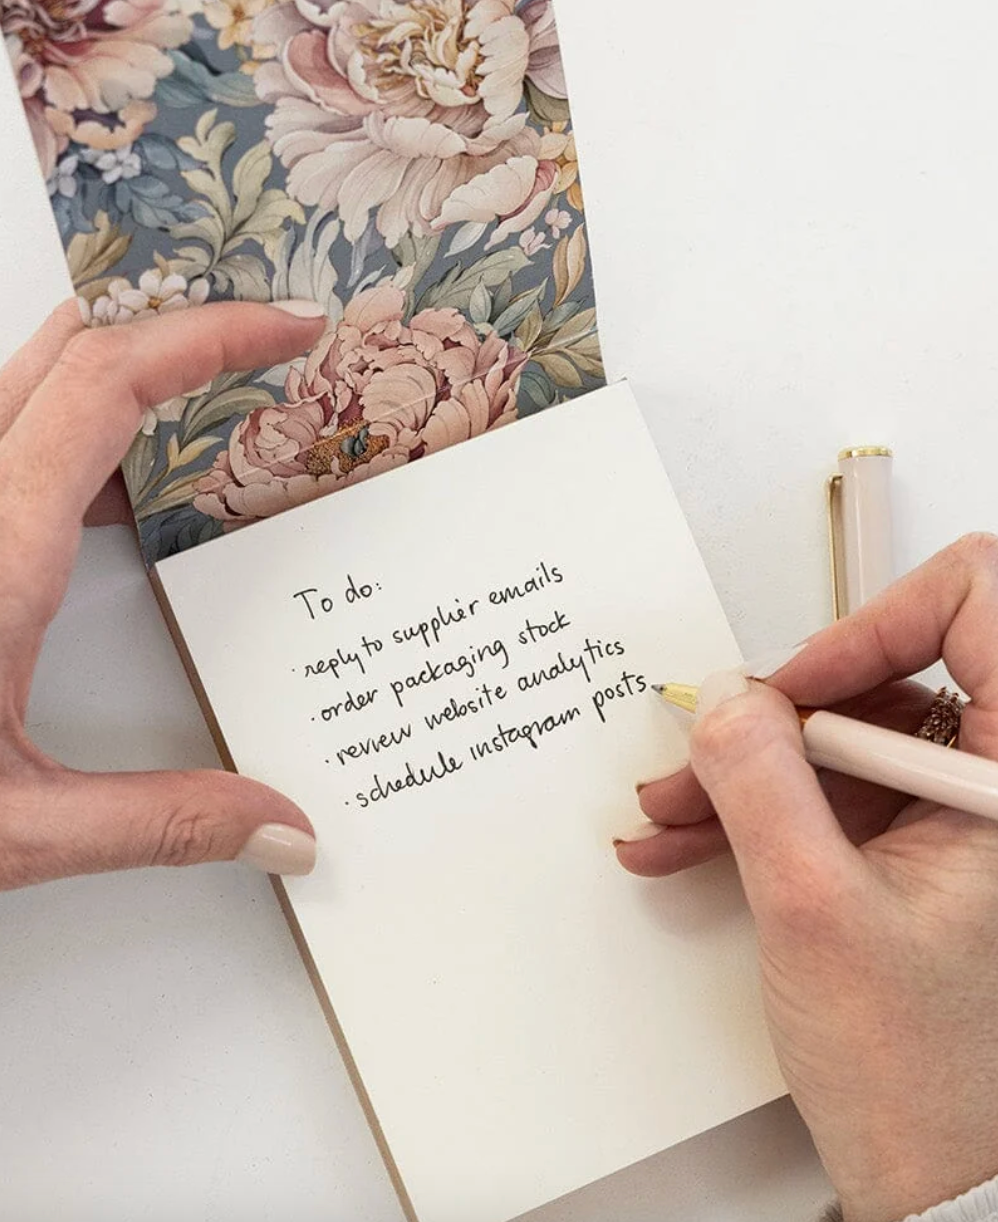 To do:
· reply to supplier emails
· order packaging stock
· review website analytics
· schedule instagram posts